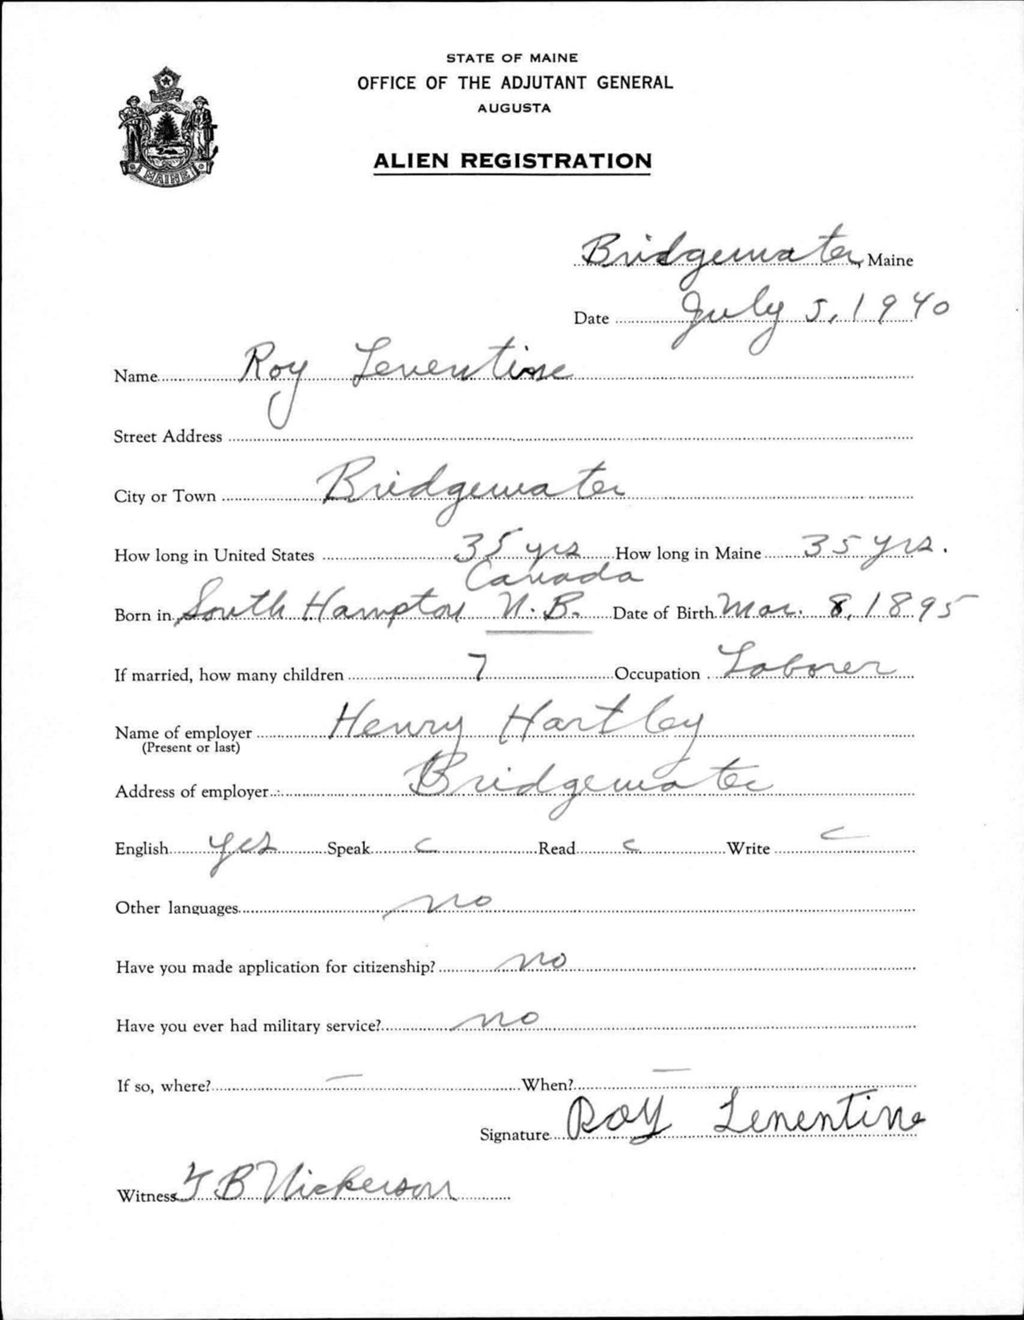 STATE OF MAINE
OFFICE OF THE ADJUTANT GENERAL
AUGUSTA
ALIEN REGISTRATION
MAINE
Bridgewater, Maine
Date July 5, 1940
Name Roy Lenentine
Street Address
City or Town Bridgewater
How long in United States 35 yrs How long in Maine 35 yrs.
Canada
Born in South Hampton N.B. Date of Birth Mar. 8, 1895
If married, how many children 7 Occupation Laborer
Name of employer Henry Hartley
(Present or last)
Address of employer Bridgewater
English yes Speak Read Write
Other languages no
Have you made application for citizenship? no
Have you ever had military service? no
If so, where? — When? —
Signature Roy Lenentine
Witness B Nickerson